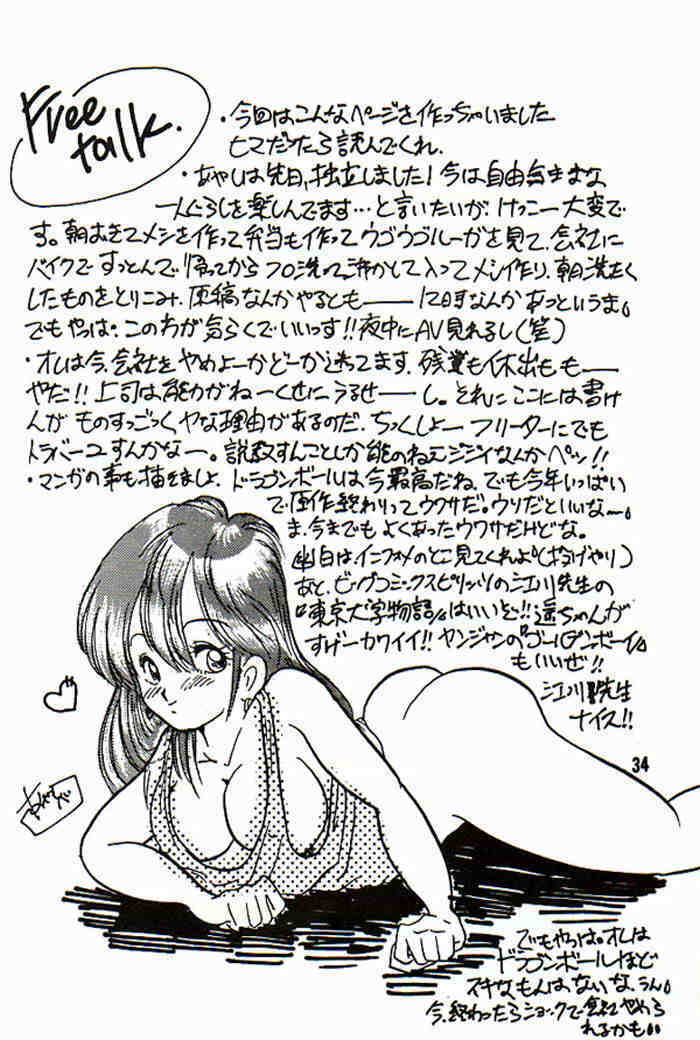 Free
talk.
・今回はこんなページを作っちゃいました
ヒマだったら読んでくれ.
・あやしは先日,独立しました!今は自由気ままな
一人ぐらしを楽しんでます…と言いたいが,けっこー大変で
す。朝おきてメシを作って弁当も作ってウゴウゴルーガを見て,会社に
バイクですっとんで帰ってからフロ洗って沸かして入ってメシ作り,朝洗たく
したものをとりこみ,原稿なんかやるとも――12時なんかあっというま。
でもやっぱ.このわが気らくでいいっす!!夜中にAV見れるし(笑)
・オレは今,会社をやめよーかどーか迷ってます.残業も休出もも――
やだ!!上司は能力がねーくせにうるせ――し。それにここには書け
んが ものすっごっくヤな理由があるのだ.ちっくしょー フリーターにでも
トラバーユすんかなー。説教すんことしか能のねえジジイなんかペッ!!
・マンガの事も描きましょ.ドラゴンボールは今最高だね.でも今年いっぱい
で原作終わりってウワサだ。ウソだといいな~。
ま,今までもよくあったウワサだけどな。
幽白はインフォメのとこ見てくれよ(投げやり)
あと,ビッグコミックスピリッツの江川先生の
『東京大学物語』はいいぞ!!遥ちゃんが
すげーカワイイ!!ヤンジャンの『ゴールデンボーイ』
もいいぜ!!
江川先生
ナイス!!
34
でもやっぱ。オレは
ドラゴンボールほど
スキなもんはないな,うん。
今,終わったらショックで会社やめら
れるかも。。